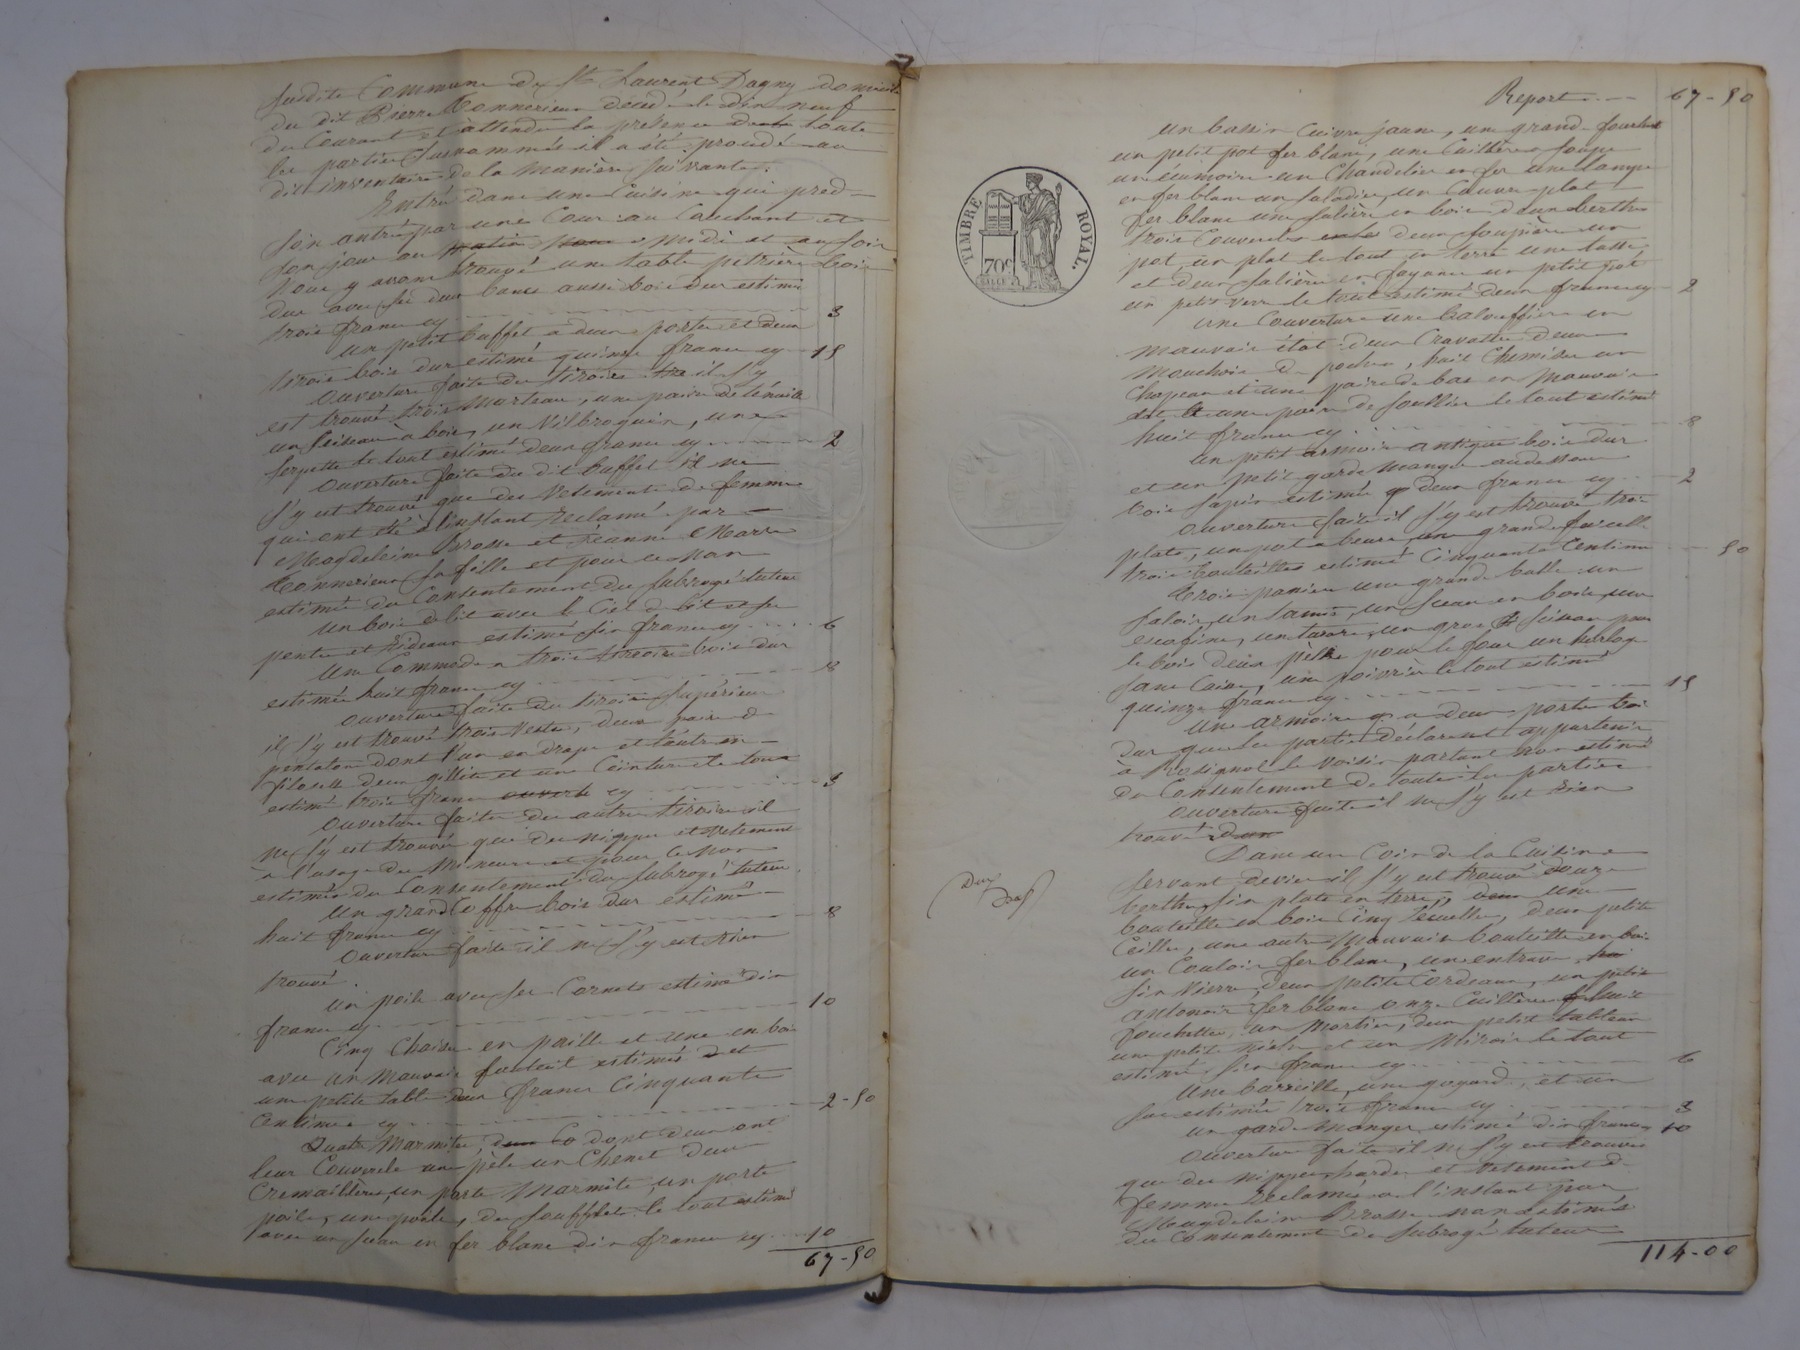 susdite Commune de St Laurent Dagny domicile
du dit Pierre Monnerieux décédé le dix neuf
du Courant et attendu la présence de toute
les partie susnommée il a été procédé au
dit inventaire de la manière suivante.
Entré dans une Cuisine qui prend
son entrée par une Cour au Couchant et
son jour au matin midi et au soir
Nous y avons trouvé une table pétrière bois
dur avec ses deux bancs aussi bois dur estimé
trois francs cy 3
un petit buffet a deux porte et deux
tiroir bois dur estimé quinze francs cy 15
Ouverture faite du tiroirs il s'y
est trouvé trois marteau, une paire de tenaille
un Ciseau à bois, un Vilbroquin, une
serpette le tout estimé deux francs cy 2
Ouverture faite du dit buffet il ne
s'y est trouvé que des Vetements de femme
qui ont été à l'instant réclamé par
Magdeleine Brosse et Jeanne Marie
Monnerieux sa fille et pour ce non
estimée du Consentement du subrogé tuteur
un bois de lit avec le Ciel de lit et ses
pente et rideaux estimé six francs cy 6
une Commode a trois tiroirs bois dur
estimée huit francs cy 8
Ouverture faite du tiroir supérieur
il s'y est trouvé trois veste, deux paire de
pentalon dont l'un en drap et l'autre en
filoselle deux gillets et une Ceinture le tout
estimé trois francs ouverte cy 3
Ouverture faite des autre tiroirs il
ne s'y est trouvé que des nippe et vetement
à l'usage des mineurs et pour ce non
estimés du Consentement du subrogé tuteur
un grand Coffre bois dur estimé
huit francs cy 8
Ouverture faite il ne s'y est rien
trouvé.
un poile avec ses Cornets estimé dix
francs cy 10
Cinq Chaise en paille et une en bois
avec un mauvais fauteuil estimés et
une petite table deux francs Cinquante
Centimes cy 2-50
Quatre Marmite, dont deux ont
leur Couvercle une pèle un Chenet deux
Cremaillère, un porte Marmite, un porte
poile, une poile, de soufflet le tout estimé
avec un seau en fer blanc dix francs cy 10
67-50
Report 67-50
un bassin Cuivre jaune, une grande
un petit pot fer blanc, une Cuillère a soupe
un ecumoire un Chandelier en fer une lampe
en fer blanc un saladier, un Couvre plat
fer blanc une salière en bois deux berthe
trois Couvercles deux soupière un
pot un plat le tout en terre une tasse
et deux salière en fayance un petit pot
un petit verre le tout estimé deux francs cy 2
une Couverture une en
mauvais état deux Cravatte deux
mouchoir de poche, huit Chemise un
Chapeau et une paire de bas en mauvais
état et une paire de soullier le tout estimé
huit francs cy 8
un petit armoir antique bois dur
et un petit garde manger audessus
bois sapin estimé deux francs cy 2
Ouverture faite il s'y est trouvé trois
plats, un pot a beure, un grande
trois bouteilles estimé Cinquante Centime 50
trois panier une grande balle un
saloir, un tamis, un seau en bois, une
un tarare, un gros pour
le bois deux pèle pour le four un horloge
sans Caisse, une poivrière le tout estimé
quinze francs cy 15
une armoire a deux porte bois
dur que les parties déclarent appartenir
à Rosignol le voisin partant non estimé
du Consentement de toutes les parties
Ouverture faite il ne s'y est rien
trouvé
Dans un Coin de la Cuisine
servant d'evier il s'y est trouvé douze
berthe, six plats en terre, une
bouteille en bois Cinq ecuelle, deux petite
une autre mauvaise bouteille en bois
un Couloir fer blanc, un entrave
six Verre, deux petite Cordeaux, un petit
antonoir fer blanc onze Cuillère
fouchette, un mortier, deux petit tableau
une petite et un Miroir le tout
estimés six francs cy 6
une barille, une goyard, et un
sac estimée trois francs cy 3
un garde Manger estimé dix francs 10
Ouverture faite il ne s'y est trouvé
que des nippe harde et vetement de
femme réclamé a l'instant par
Magdeleine Brosse non estimée
du Consentement du subrogé tuteur
114-00
TIMBRE ROYAL.
70c